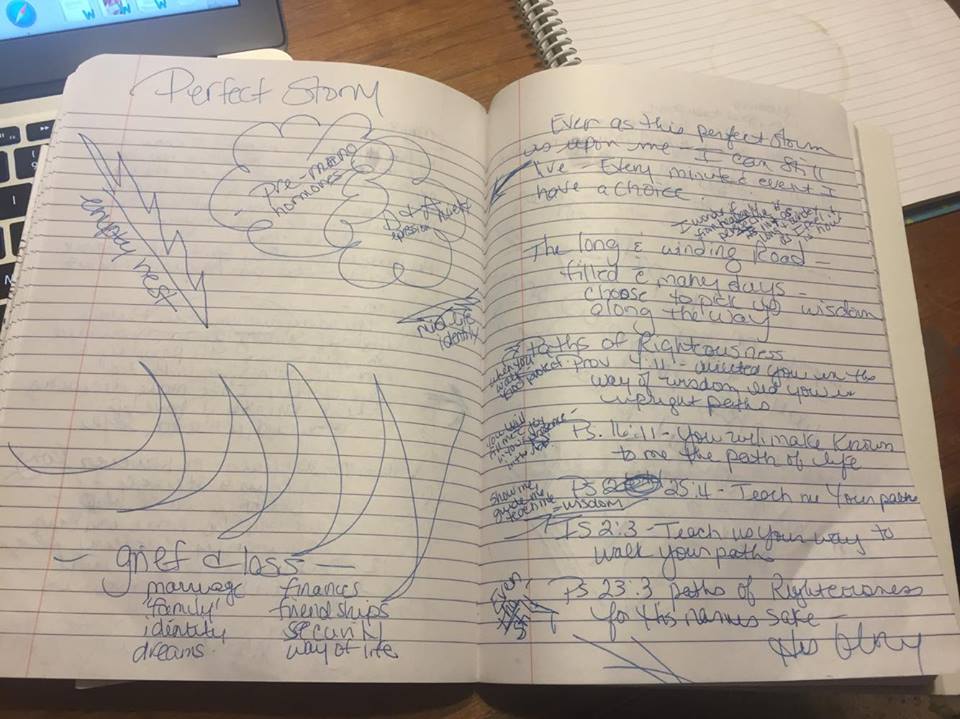 Perfect Storm
empty nest
Pre-meno
hormones
mid life
identity
- grief & loss -
marriage
'family'
identity
dreams
finances
friendships
security
way of life
Ever as this perfect storm
is upon me - I can still
live - Every minute & event I
have a choice.
The long & winding Road -
filled c many days -
choose to pick up wisdom
along the way
Paths of Righteousness
when you
walk
Prov 4:11 - directed you in the
way of wisdom led you in
upright paths
you will
fill me c joy
in your presence
Ps. 16:11 - You will make known
to me the path of life
show me,
guide me,
teach me
= wisdom
Ps 25:4 - Teach me Your paths
IS 2:3 - Teach us your way to
walk your path
Ps 23:3 paths of Righteousness
for His names sake -
His Glory